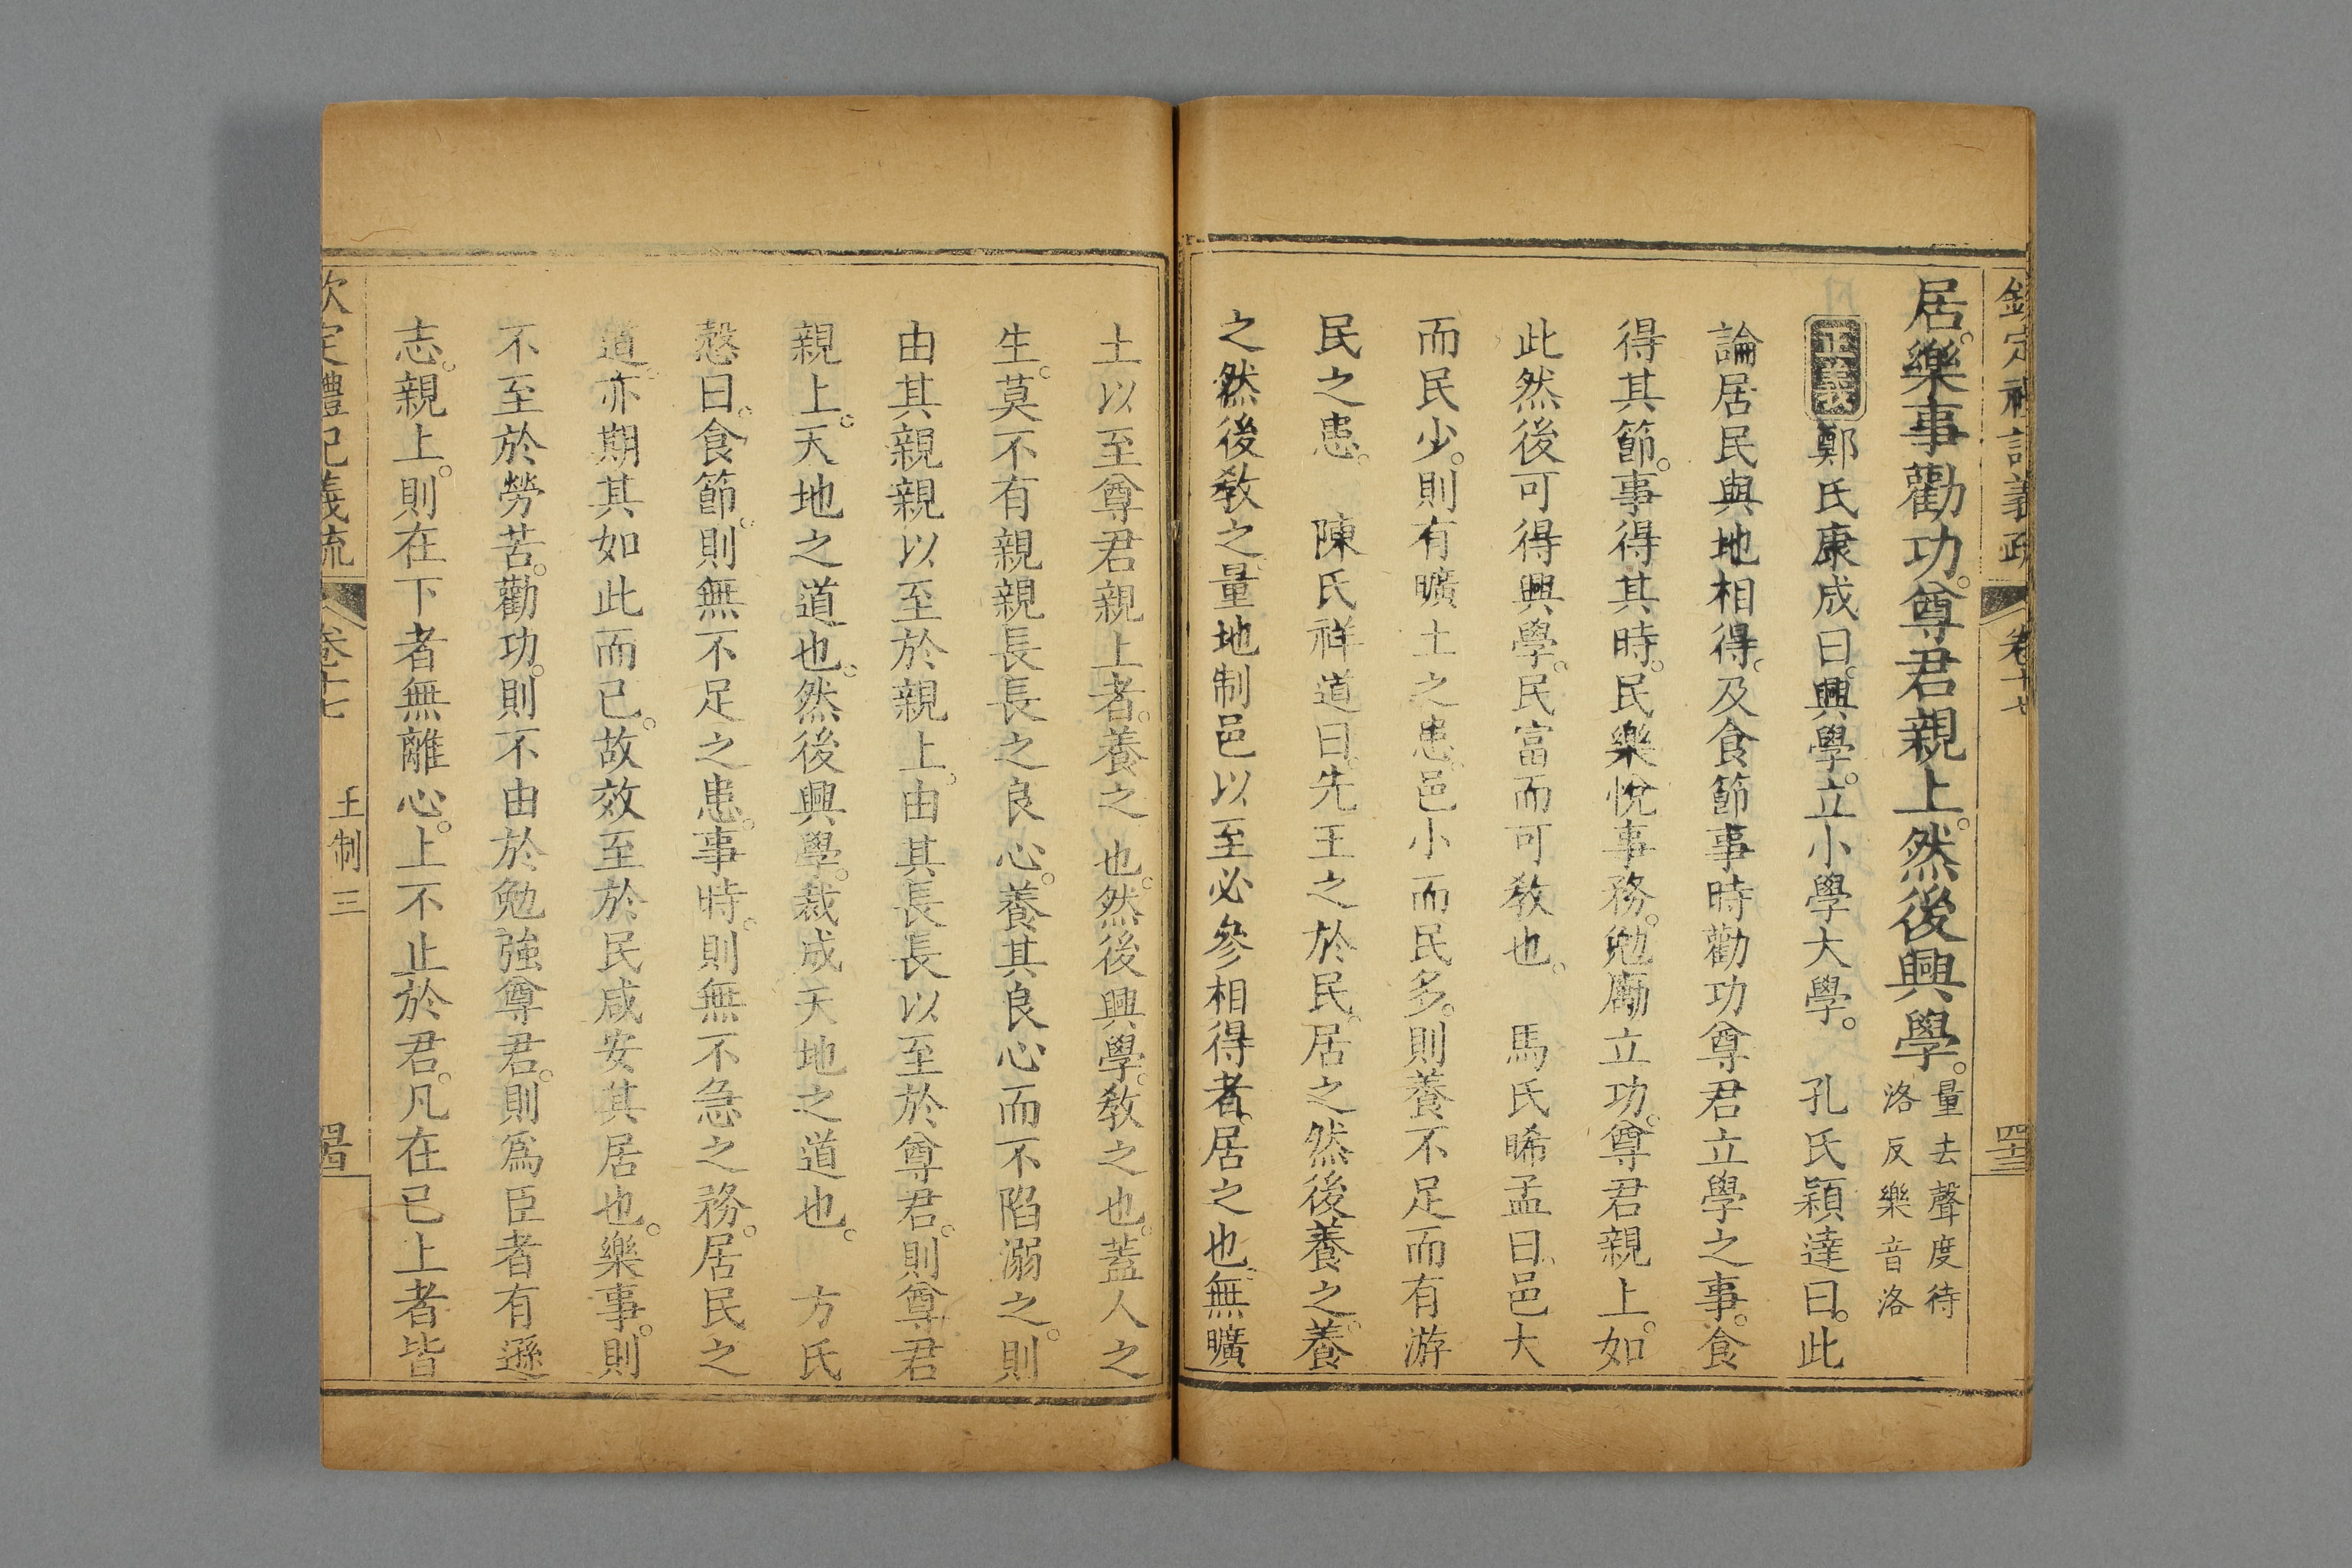 欽定禮記義疏 卷十七 四十三
居。樂事勸功。尊君親上。然後興學。量去聲度待洛反樂音洛
正義 鄭氏康成曰。興學。立小學大學。 孔氏穎達曰。此
論居民與地相得。及食節事時勸功尊君立學之事。食
得其節。事得其時。民樂悅事務。勉勵立功。尊君親上。如
此然後可得興學。民富而可敎也。 馬氏晞孟曰。邑大
而民少。則有曠土之患。邑小而民多。則養不足而有游
民之患。 陳氏祥道曰。先王之於民。居之然後養之。養
之然後敎之。量地制邑以至必參相得者。居之也。無曠
土以至尊君親上者。養之也。然後興學。敎之也。蓋人之
生。莫不有親親長長之良心。養其良心而不陷溺之。則
由其親親以至於親上。由其長長以至於尊君。則尊君
親上。天地之道也。然後興學。裁成天地之道也。 方氏
慤曰。食節。則無不足之患。事時。則無不急之務。居民之
道。亦期其如此而已。故效至於民咸安其居也。樂事。則
不至於勞苦。勸功。則不由於勉強尊君。則爲臣者有遜
志。親上。則在下者無離心。上不止於君。凡在已上者皆
欽定禮記義疏 卷十七 王制 三